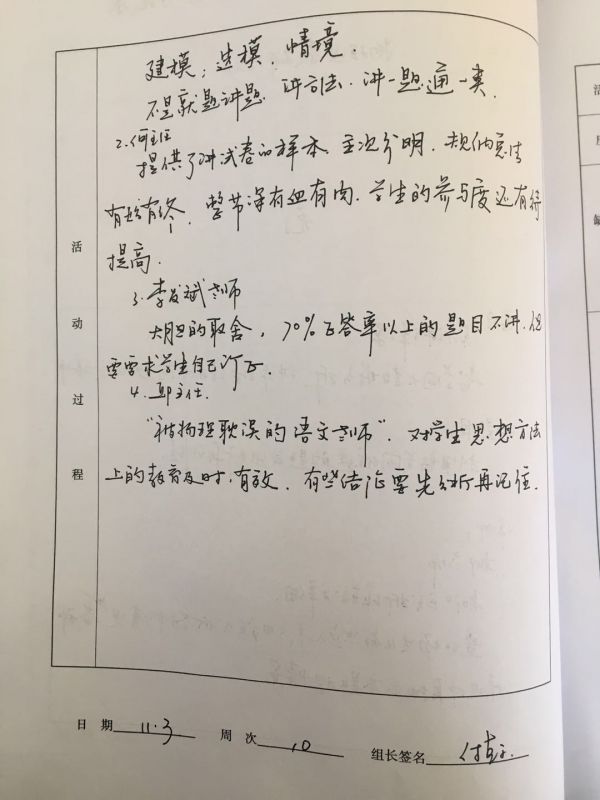 建模，选模，情境．
不是就题讲题，讲方法．讲一题通一类．
2.何主任
提供了讲试卷的样本，主次分明，规纳总结
有始有终，整节课有血有肉．学生的参与度还有待
提高．
3.李发斌老师
大胆的取舍，70%正答率以上的题目不讲，但
需要求学生自己订正．
4. 主任．
“被物理耽误的语文老师”．对学生思想方法
上的教育及时，有效．有些结论要先分析再记住．
活动过程
日期 11.3 周次 10 组长签名